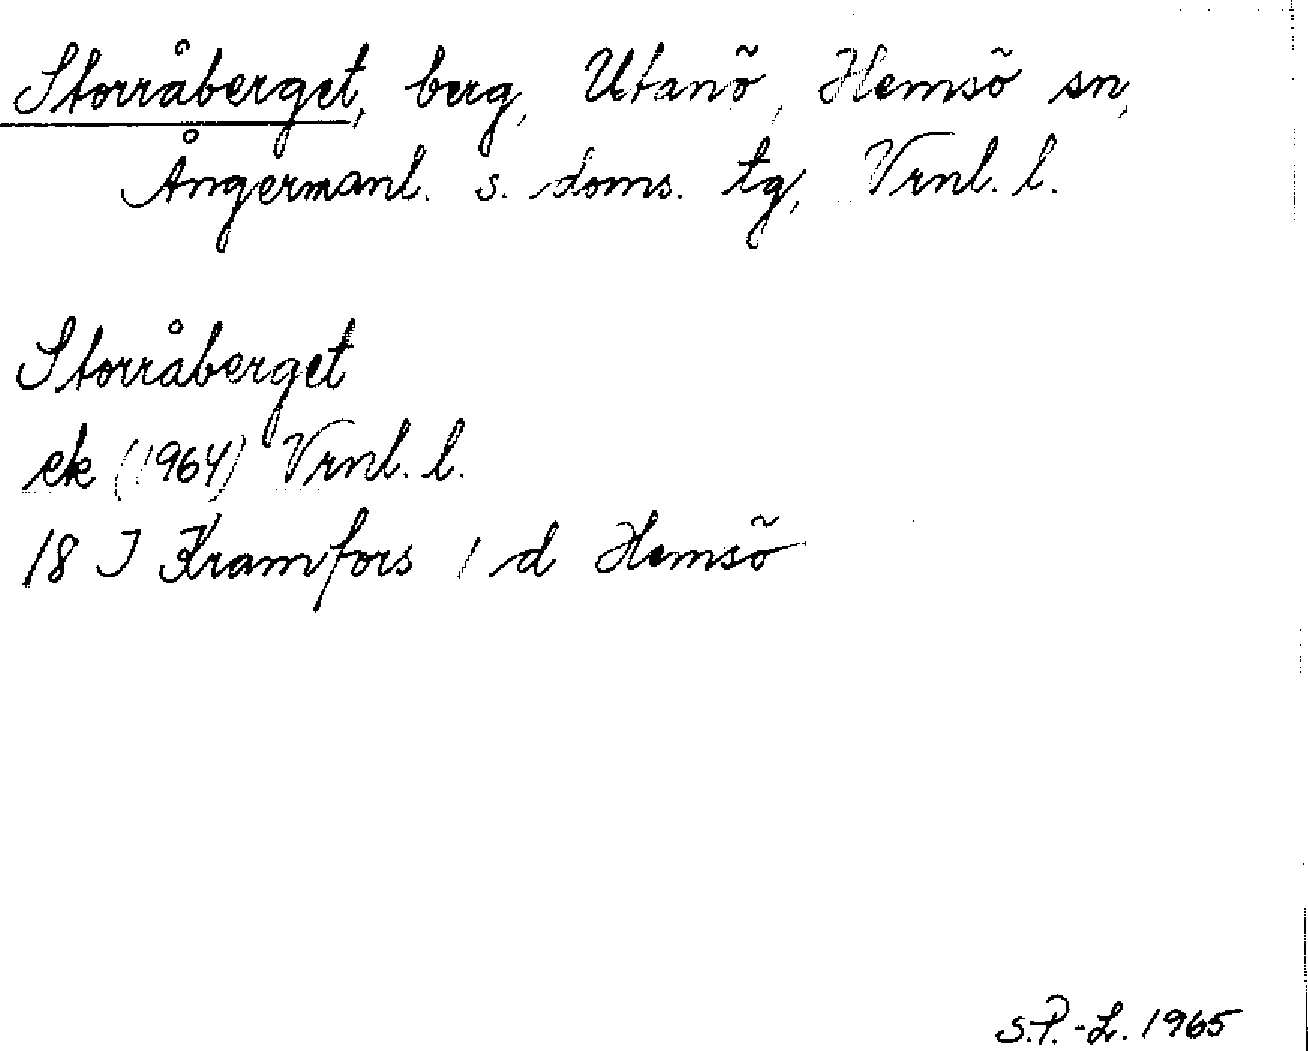 Storråberget, berg, Utanö, Hemsö sn,
Ångermanl. s. doms. tg, Vrnl. l.
Storråberget
ek (1964) Vrnl. l.
18 I Kramfors 1 d Hemsö
S.P.-L. 1965